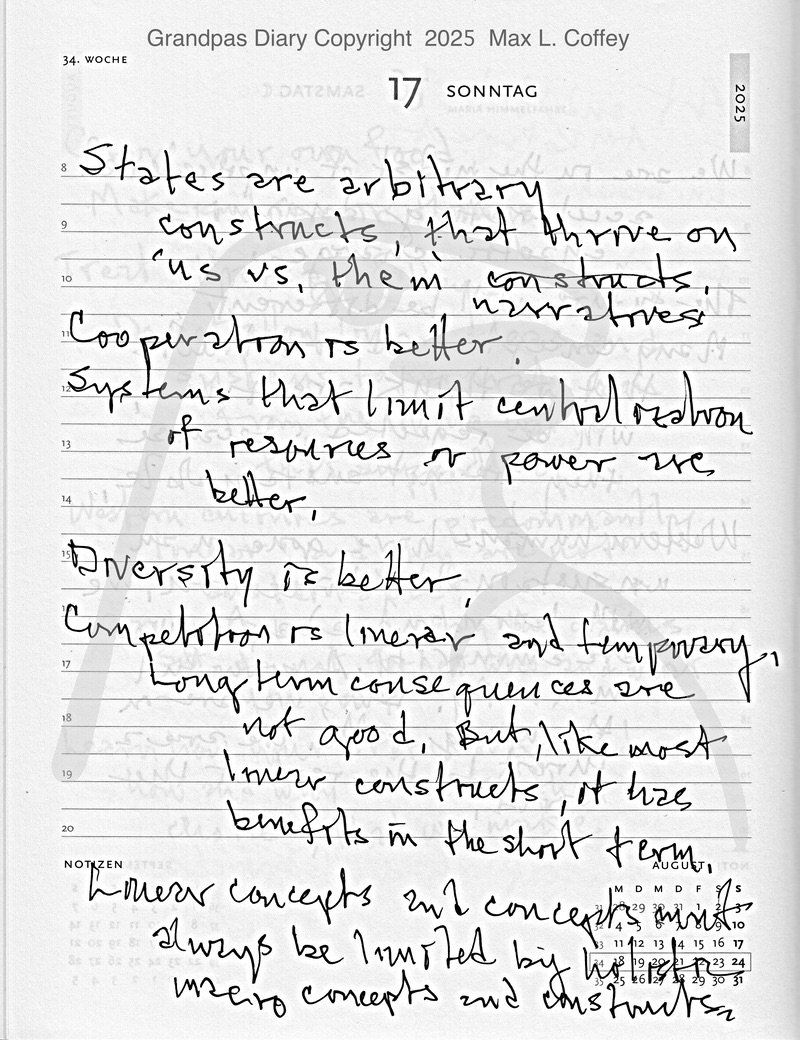 Grandpas Diary Copyright 2025 Max L. Coffey
34. WOCHE
17 SONNTAG
2025
8 States are arbitrary
9 constructs, that thrive on
10 "us vs. them" constructs.
narratives
11 Cooperation is better.
12 Systems that limit centralization
13 of resources or power are
14 better.
15 Diversity is better.
Competition is linear and temporary,
17 Long term consequences are
18 not good. But, like most
19 linear constructs, it has
20 benefits in the short term.
NOTIZEN AUGUST
Linear concepts and concepts must
always be limited by holistic
macro concepts and constructs.
M D M D F S S
31 28 29 30 31 1 2 3
32 4 5 6 7 8 9 10
33 11 12 13 14 15 16 17
34 18 19 20 21 22 23 24
35 25 26 27 28 29 30 31